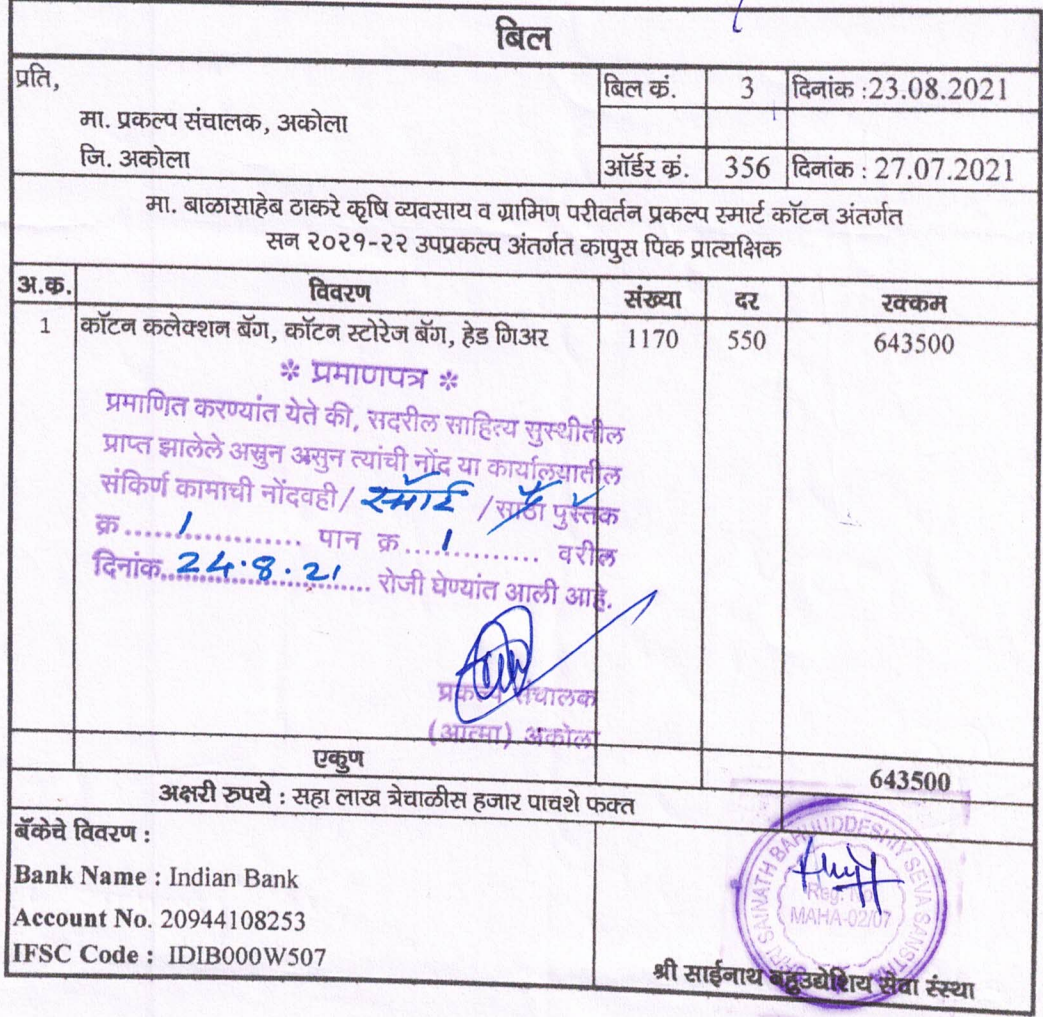 बिल
प्रति,
बिल कं. 3 दिनांक :23.08.2021
मा. प्रकल्प संचालक, अकोला
जि. अकोला
ऑर्डर कं. 356 दिनांक : 27.07.2021
मा. बाळासाहेब ठाकरे कृषि व्यवसाय व ग्रामिण परीवर्तन प्रकल्प स्मार्ट कॉटन अंतर्गत
सन २०२१-२२ उपप्रकल्प अंतर्गत कापुस पिक प्रात्यक्षिक
अ.क. विवरण संख्या दर रक्कम
1 कॉटन कलेक्शन बॅग, कॉटन स्टोरेज बॅग, हेड गिअर 1170 550 643500
* प्रमाणपत्र *
प्रमाणित करण्यांत येते की, सदरील साहित्य सुस्थीतील
प्राप्त झालेले असुन असुन त्यांची नोंद या कार्यालयातील
संकिर्ण कामाची नोंदवही/ स्मार्ट /साठा पुस्तक
क्र.....1............ पान क्र....1........... वरील
दिनांक..24.8.21.... रोजी घेण्यांत आली आहे.
प्रकल्प संचालक
(आत्मा) अकोला
एकुण 643500
अक्षरी रुपये : सहा लाख त्रेचाळीस हजार पाचशे फक्त
बॅकेचे विवरण :
Bank Name : Indian Bank
Account No. 20944108253
IFSC Code : IDIB000W507
SHRI SAINATH BAHUUDDESHIY SEVA SANSTHA
Reg. No.
MAHA-02/07
श्री साईनाथ बहुउद्येशिय सेवा संस्था